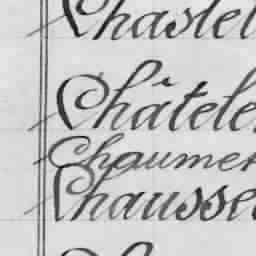 Chastel
Châtele
Chaumer
Chausse